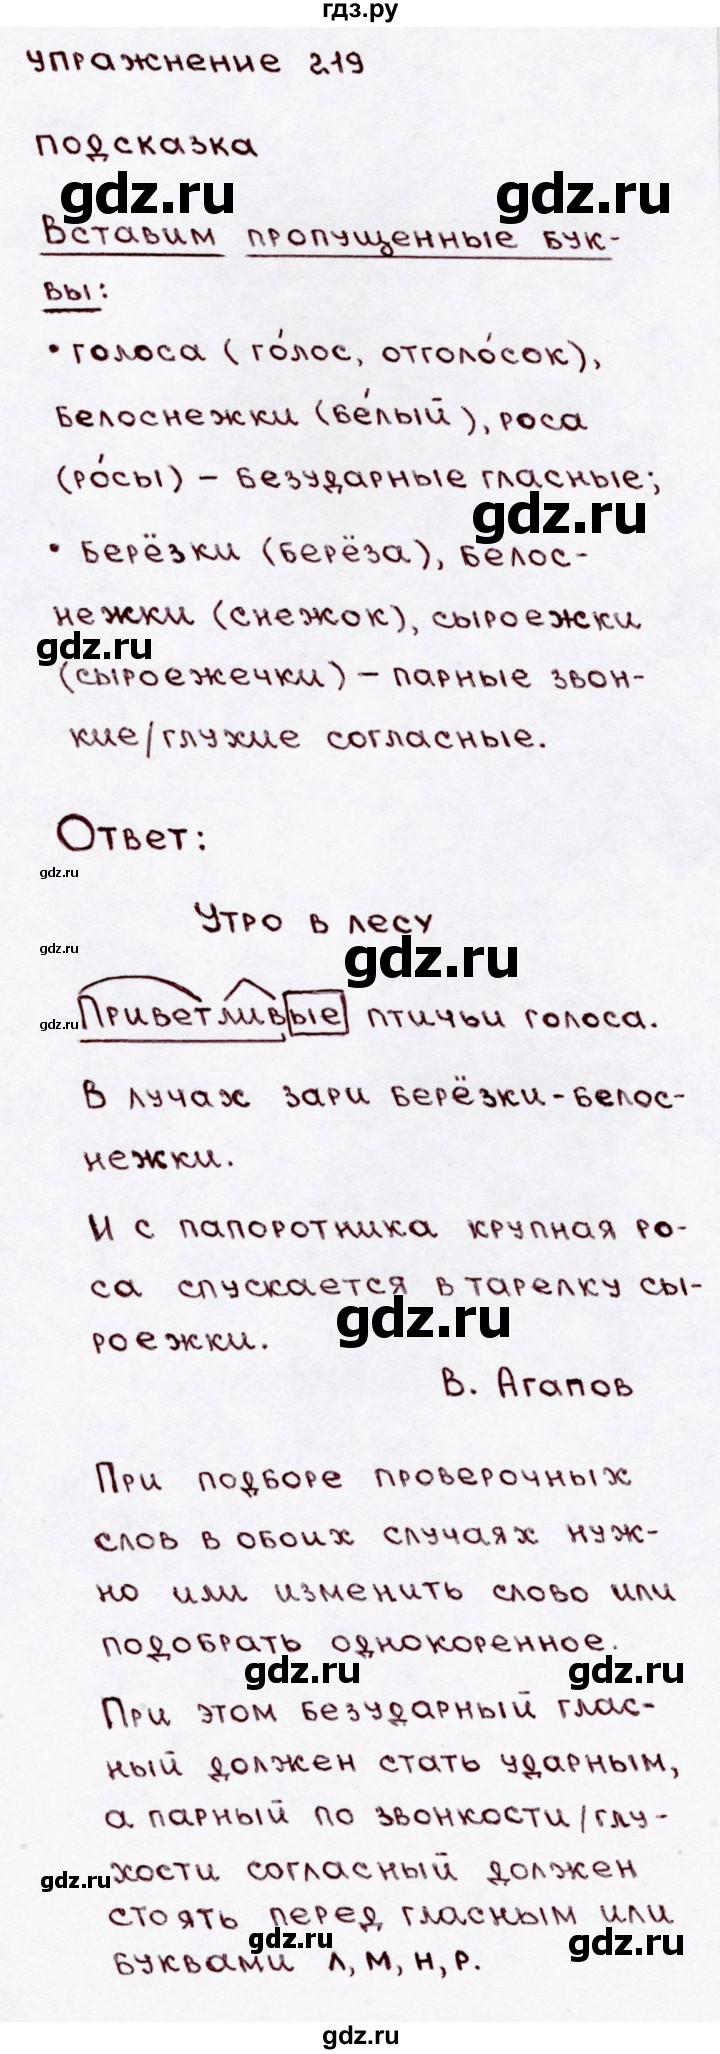 гдз.ру
упражнение 219
подсказка
gdz.ru gdz.ru
Вставим пропущенные бук-
вы:
• голоса (го́лос, отголо́сок),
белоснежки (бе́лый), роса
(ро́сы) – безударные гласные;
gdz.ru
• берёзки (берёза), белос-
нежки (снежок), сыроежки
gdz.ru
(сыроежечки) – парные звон-
кие/глухие согласные.
Ответ:
gdz.ru
Утро в лесу
gdz.ru gdz.ru
Приветливые птичьи голоса.
gdz.ru
В лучах зари берёзки-белос-
нежки.
И с папоротника крупная ро-
са спускается в тарелку сы-
gdz.ru
роежки.
В. Агапов
При подборе проверочных
слов в обоих случаях нуж-
но или изменить слово или
подобрать однокоренное.
gdz.ru gdz.ru
При этом безударный глас-
ный должен стать ударным,
а парный по звонкости/глу-
хости согласный должен
gdz.ru
стоять перед гласным или
gdz.ru gdz.ru
буквами л, м, н, р.
gdz.ru